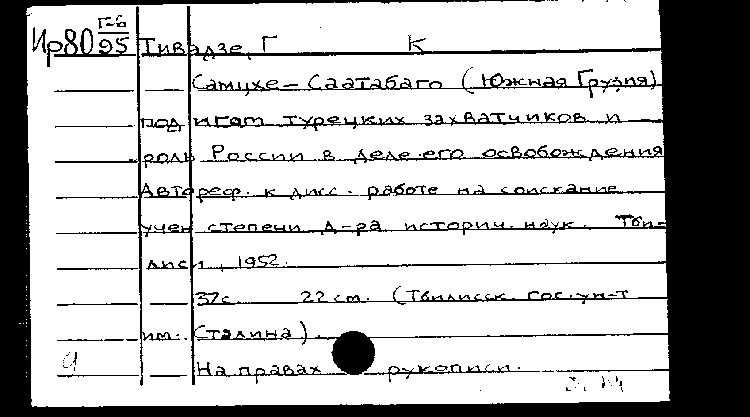 Ир80 Г-6/95 Тивадзе, Г К
Самцхе-Саатабаго (Южная Грузия)
под игом турецких захватчиков и
роль России в деле его освобождения
Автореф. к дисс. работе на соискание
учен степени д-ра историч. наук. Тби-
лиси, 1952.
37с. 22 см. (Тбилисск. гос. ун-т
им. Сталина).
На правах рукописи.